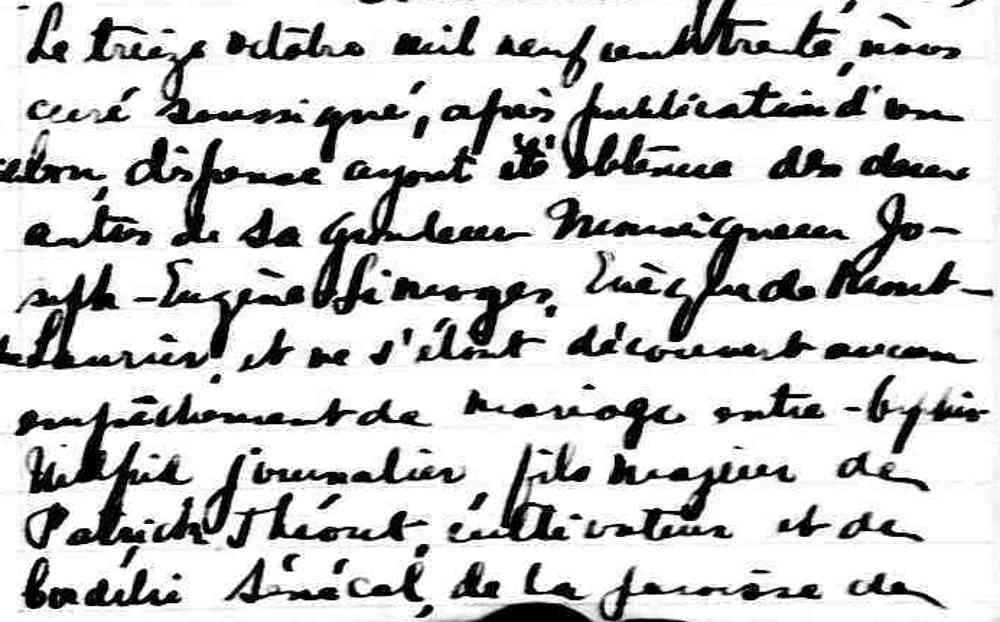 Le treize octobre mil neuf cent trente, nous
curé soussigné, après publication d'un
ban, dispense ayant été obtenue des deux
autres de Sa Grandeur Monseigneur Jo-
seph-Eugène Limoges, Evêque de Mont-
Laurier, et ne s'étant découvert aucun
empêchement de mariage entre
Wilfrid journalier, fils majeur de
Patrick Théorêt, cultivateur et de
Cordélie Sénécal, de la paroisse de